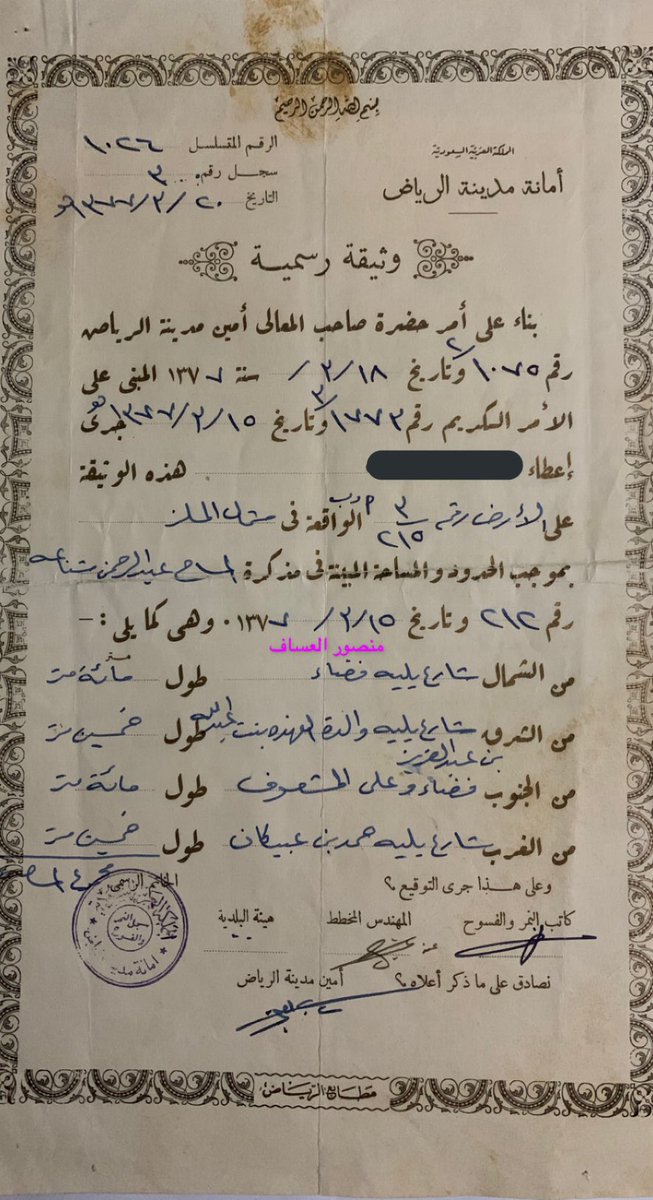 بسم الله الرحمن الرحيم
المملكة العربية السعودية
أمانة مدينة الرياض
الرقم المتسلسل ١٠٢٦
سجل رقم ٣
التاريخ ٢٠/٣/١٣٧٧هـ
وثيقة رسمية
بناء على أمر حضرة صاحب المعالى أمين مدينة الرياض
رقم ١٠٧٥/٢ وتاريخ ١٨/٣/ سنة ١٣٧٧ المبنى على
الأمر الكريم رقم ١٧٧٣/٣ وتاريخ ١٥/٣/١٣٧٧هـ جرى
إعطاء هذه الوثيقة
على الأرض رقم ٣/٢١٥ الواقعة فى شمال الملز
بموجب الحدود والمساحة المبينة فى مذكرة المساح عبدالرحمن
رقم ٢١٢ وتاريخ ١٥/٣/١٣٧٧٠ وهى كما يلى :-
منصور العساف
من الشمال شارع يليه فضاء طول مائة متر
من الشرق شارع يليه والدة العهده بنت عبدالله بن عبدالعزيز طول خمسين متر
من الجنوب فضاء وعلى المشعوف طول مائة متر
من الغرب شارع يليه حمد بن عبيكان طول خمسين متر
وعلى هذا جرى التوقيع ؟
الخاتم الرسمى
كاتب النمر والفسوح المهندس المخطط هيئة البلدية
عنه
نصادق على ما ذكر أعلاه ؟ أمين مدينة الرياض
أمانة مدينة الرياض
مطابع الرياض